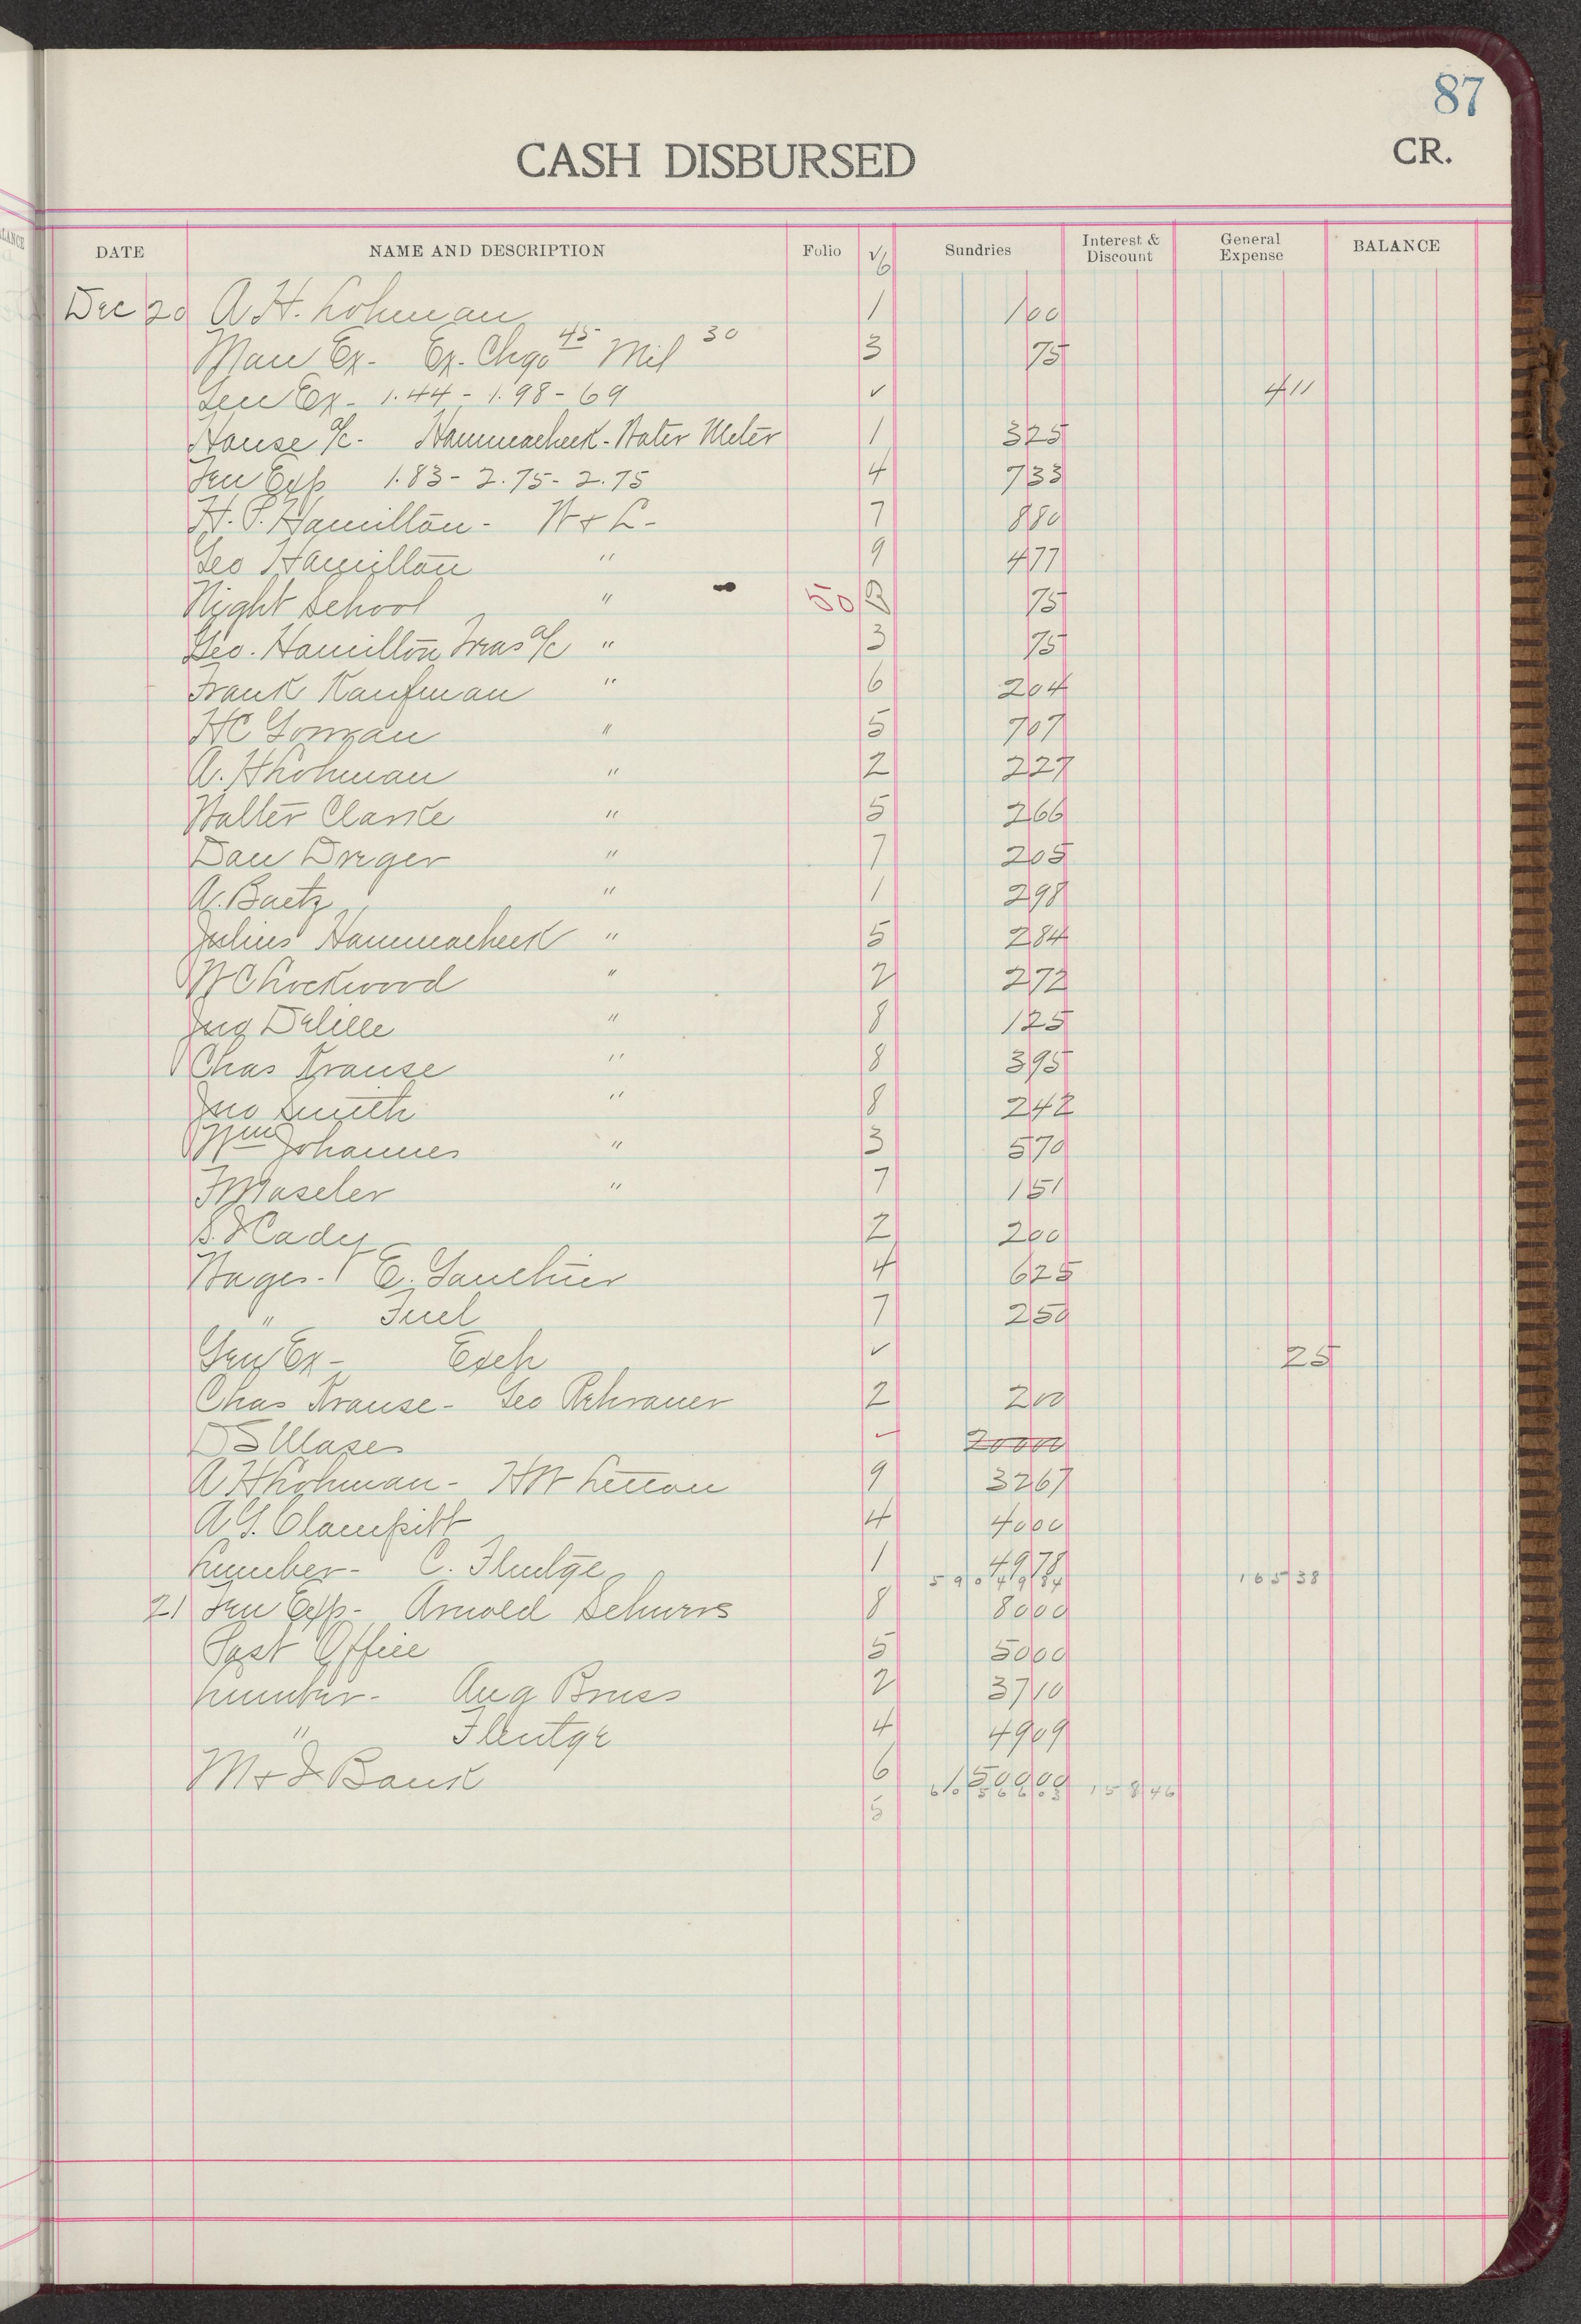 87
CASH DISBURSED CR.
DATE NAME AND DESCRIPTION Folio √ Sundries Interest & Discount General Expense BALANCE
6
Dec 20 A.H. Lohman 1 100
Man Ex- Ex. Chgo 45 Mil 30 3 75
Gen Ex- 1.44 - 1.98 - 69 ✓ 411
House a/c - Hammacheck - Water Meter 1 325
Fen Exp 1.83 - 2.75 - 2.75 4 733
H.P. Hamilton - W+L - 7 880
Geo Hamilton " 9 477
Night School " 50 75
Geo. Hamilton Treas a/c " 3 75
Frank Kaufman " 6 204
HC Gorman " 5 707
A. H Lohman " 2 227
Walter Clarke " 5 266
Dan Dreger " 7 205
A. Baetz " 1 298
Julius Hammacheck " 5 284
W C Lockwood " 2 272
Jno Delille " 8 125
Chas Krause " 8 395
Jno Smith " 8 242
Wm Johannes " 3 570
F Maseler " 7 151
S. J Cady 2 200
Wages - E. Gauthier 4 625
" Fuel 7 250
Gen Ex - Exch ✓ 25
Chas Krause - Geo Rehrauer 2 200
D S ✓ 20000
A H Lohman - HW Letton 9 3267
A G. Clampitt 4 4000
Lumber - C. Flentge 1 4978
590 49 84 165 38
21 Fen Exp - Arnold Schuers 8 8000
Post Office 5 5000
Lumber - Aug Bruss 2 3710
" Flentge 4 4909
M + J Bank 6 150000
610 566 03 158 46
5